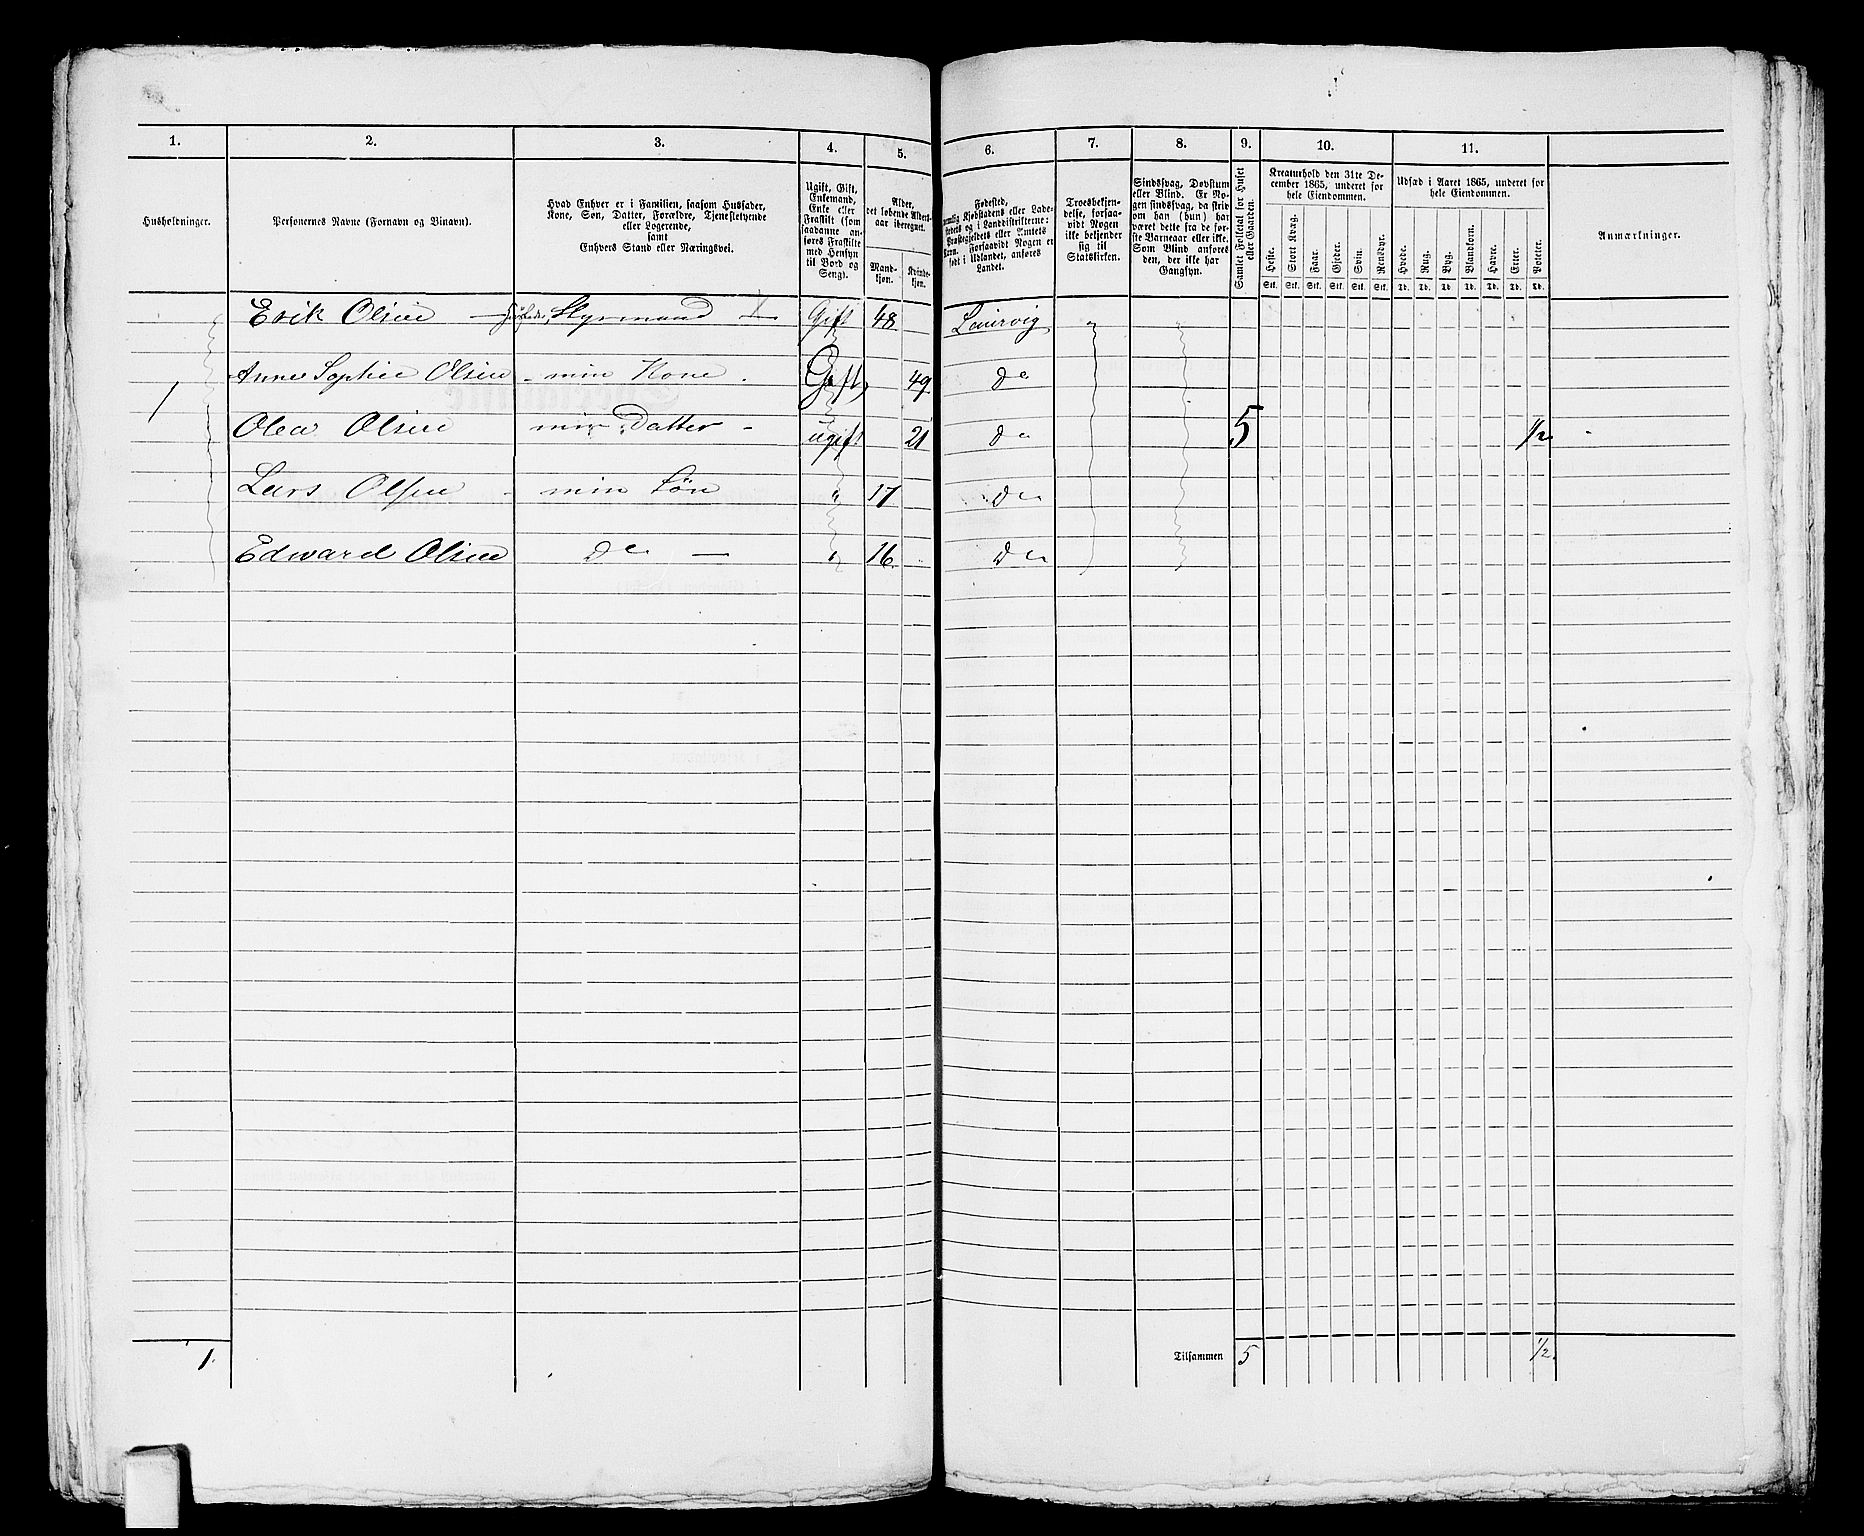 1. 2. 3. 4. 5. 6. 7. 8. 9. 10. 11.
Husholdninger.
Personernes Navne (Fornavn og Binavn).
Hvad Enhver er i Familien, saasom Husfader,
Kone, Søn, Datter, Forældre, Tjenestetyende
eller Logerende,
samt
Enhvers Stand eller Næringsvei.
Ugift, Gift,
Enkemand,
Enke eller
Fraskilt (som
saadanne an-
føres Fraskilte
med Hensyn
til Bord og
Seng).
Alder,
det løbende Alders-
aar iberegnet.
Mand-
kjøn.
Kvinde-
kjøn.
Fødested,
nemlig Kjøbstadens eller Lade-
stedets og i Landdistrikterne:
Præstegjeldets eller Amtets
Navn. Forsaavidt Nogen er
født i Udlandet, anføres
Landet.
Troesbekjen-
delse, forsaa-
vidt Nogen
ikke bekjender
sig til
Statskirken.
Sindssvag, Døvstum
eller Blind. Er No-
gen sindssvag, da skriv
om han (hun) har
været dette fra de før-
ste Barneaar eller ikke.
Som Blind anføres
den, der ikke har
Gangsyn.
Samlet Folketal for Huset
eller Gaarden.
Kreaturhold den 31te De-
cember 1865, underet for
hele Eiendommen.
Heste. Stort Kvæg. Faar. Gjeder. Svin. Rensdyr.
Stk. Stk. Stk. Stk. Stk. Stk.
Udsæd i Aaret 1865, underet for
hele Eiendommen.
Hvede. Rug. Byg. Blandkorn. Havre. Erter. Poteter.
Td. Td. Td. Td. Td. Td. Td.
Anmærkninger.
Erik Olsen Styrmand Gift 48 Laurvig
Anne Sophie Olsen min Kone Gift 49 do
1 Olea Olsen min Datter ugift 21 do 5 1/2
Lars Olsen min Søn " 17 do
Edward Olsen do " 16 do
1. Tilsammen 5 1/2.